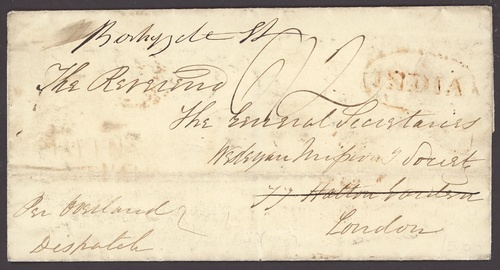 St
INDIA
The Reverend
The General Secretaries
Wesleyan Mission Society
77 Hatton Garden
London
Per Overland
Dispatch